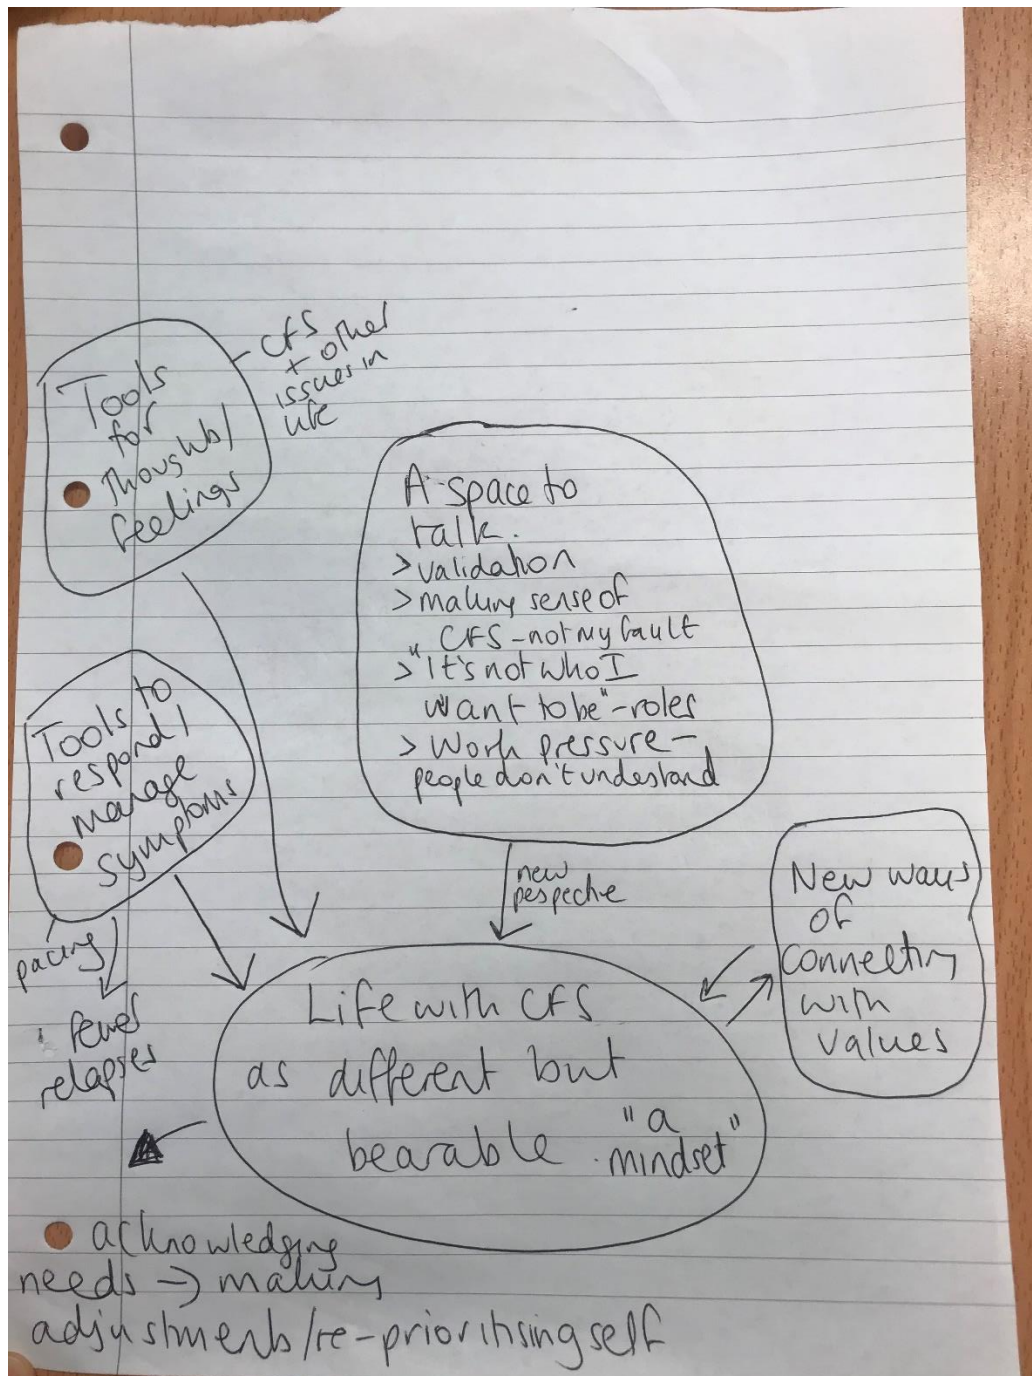 Tools
for
Thoughts/
feelings
- CFS
+ other
issues in
life
A space to
talk.
> validation
> making sense of
CFS - not my fault
> "It's not who I
want to be" - roles
> Work pressure -
people don't undestand
Tools to
respond/
manage
symptoms
pacing
fewer
relapses
new
pespective
New ways
of
connecting
with
values
Life with CFS
as different but
bearable. "a
mindset"
acknowledging
needs → making
adjustments/re-prioritising self